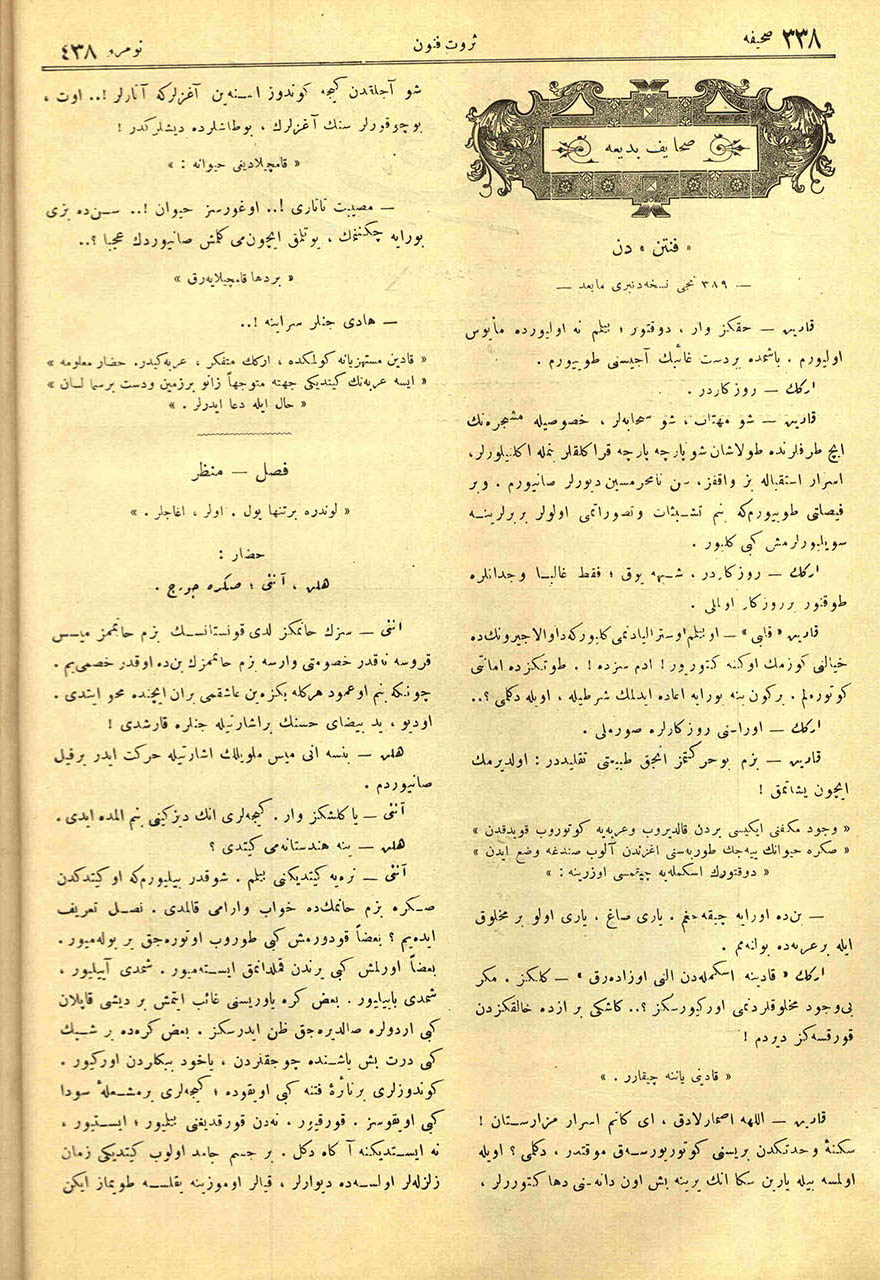 صحیفه ٣٣٨
ثروت فنون
نومرو ٤٣٨
صحایف بدیعه
« فنتن » دن
— ٣٨٩ نجی نسخه‌دنبری مابعد —
قادین — حقكز وار ، دوقتور ؛ بیلم نه اولیورده مأیوس
اولیورم . باشمده بردست غائبك آجیسنی طویییورم .
اركك — روزكاردر .
قادین — شو مهتاب ، شو سحابه‌لر ، خصوصیله مشجره‌نك
ایچ طرفلرنده طولاشان شو پارچه پارچه قراكلقلر بنمله اكلنیلورلر،
اسرار استقباله بز واقفز، سن نامحرمسین دیورلر صانیورم . و بر
فیصلتی طوییورم‌كه بنم تشبثات وتصوراتمی اولولر بربرلرینه
سویلیورلرمش كبی كلیور .
اركك — روزكاردر ، شبهه یوق ؛ فقط غالبا وجدانلره
طوقنور برروزكار اولملی .
قادین « قابی » — او بیلم اوسترالیادنمی كلیوركه دوالاجیرونك‌ده
خیالنی كوزمك اوكنه كتوریور! ادم سزده ! . طوتكزده امانتی
كوتوره‌لم . بركون ینه بورایه اعاده ایدلمك شرطیله ، اویله دكلمی ؟..
اركك — اوراسنی روزكارلره صورملی .
قادین — بزم بوحركتمز انجق طبیعتی تقلیددر : اولدیرمك
ایچون یشاتمق !
« وجود مكفنی ایكیسی بردن قالدیروب وعربه‌یه كوتوروب قویدقدن »
« صكره حیوانك ییه‌جك طوربه‌سنی اغزندن آلوب صندغه وضع ایدن »
« دوقتورك اسكمله‌یه چیقمسی اوزرینه : »
— بن‌ده اورایه چیقه‌جغم . یاری صاغ ، یاری اولو بر مخلوق
ایله برعربه‌ده بولنه‌مم .
اركك « قادینه اسكمله‌دن النی اوزاده‌رق » — كلكز . مكر
بی‌وجود مخلوقلردنمی اوركیورسكز ؟.. كاشكی بر ازده خالقكزدن
قورقسه‌كز دیردم !
« قادینی یاننه چیقارر . »
قادین — اللهه اصمارلادق ، ای كاتم اسرار مزارستان !
سكنهٔ وحدتكدن بریسنی كوتوریورسه‌ق موقتدر ، دكلمی ؟ اویله
اولمسه بیله یارین سكا انك یرینه بش اون دانه‌سنی دها كتوررلر ،
شو آجلقدن كیجه كوندوز اسنه‌ین آغزلركه آتارلر !.. اوت ،
بوچوقورلر سنك آغزلرك ، بوطاشلرده دیشلركدر !
« قامچیلادیغی حیوانه : »
— مصیبت تاتاری !.. اوغورسز حیوان !.. سن‌ده بزی
بورایه چكنمك ، یوتلمق ایچون‌می كلمش صانیوردك عجبا ؟..
« بردها قامچیلایه‌رق »
— هادی جنلر سراینه !..
« قادین مستهزیانه كولمكده ، اركك متفكر ، عربه‌كیدر. حضار معلومه »
« ایسه عربه‌نك كیتدیكی جهته متوجهاً زانو برزمین ودست برسما لسان »
« حال ایله دعا ایدرلر . »
فصل — منظر
« لوندره برتنها یول . اولر ، اغاجلر . »
حضار :
هلن ، آننی ؛ صكره جورج .
اننی — سزك حانمكز لدی قونستانسك بزم حانممز میس
قروسه نه‌قدر خصومتی وارسه بزم حانممزك بن‌ده اوقدر خصمی‌یم .
چونكه بنم اوعمود هركله بكزه‌ین عاشقمی بران ایچنده محو ایتدی .
اودیو ، ید بیضای حسنك براشارتیله جنلره قارشدی !
هلن — بنسه انی میس ملویلك اشارتیله حركت ایدر برفیل
صانیوردم .
آننی — یاكلشكز وار . كیجه‌لری انك دیزكینی بنم المده ایدی .
هلن — ینه هندستانه‌می كیتدی ؟
آننی — نره‌یه كیتدیكنی بیلم . شوقدر بیلیورم‌كه او كیتدكدن
صكره بزم حانمك‌ده خواب وارامی قالمدی . نصل تعریف
ایده‌یم ؟ بعضاً قودورمش كبی طوروب اوتوره‌جق بر یوله‌میور .
بعضاً اورلمش كبی یرندن قملدانمق ایسته‌میور . شمدی آییلیور ،
شمدی باییلیور . بعض كره یاوریسنی غائب ایتمش بر دیشی قاپلان
كبی اردولره صالدیره‌جق ظن ایدرسكز . بعض كره‌ده بر شبك
كبی درت بش یاشنده چوجقلردن ، یاخود بیكاردن اوركیور .
كوندوزلری برنائرهٔ فتنه كبی اویقوده ؛ كیجه‌لری برمشعلهٔ سودا
كبی اویقوسز . قورقیور . نه‌دن قورقدیغنی بیلیور ؛ ایستیور ،
نه ایستدیكنه آكاه دكل . بر جسم جامد اولوب كیتدیكی زمان
زلزله‌لر اولسه‌ده دیوارلر ، قیالر اوموزینه یقلسه طویماز ایكن